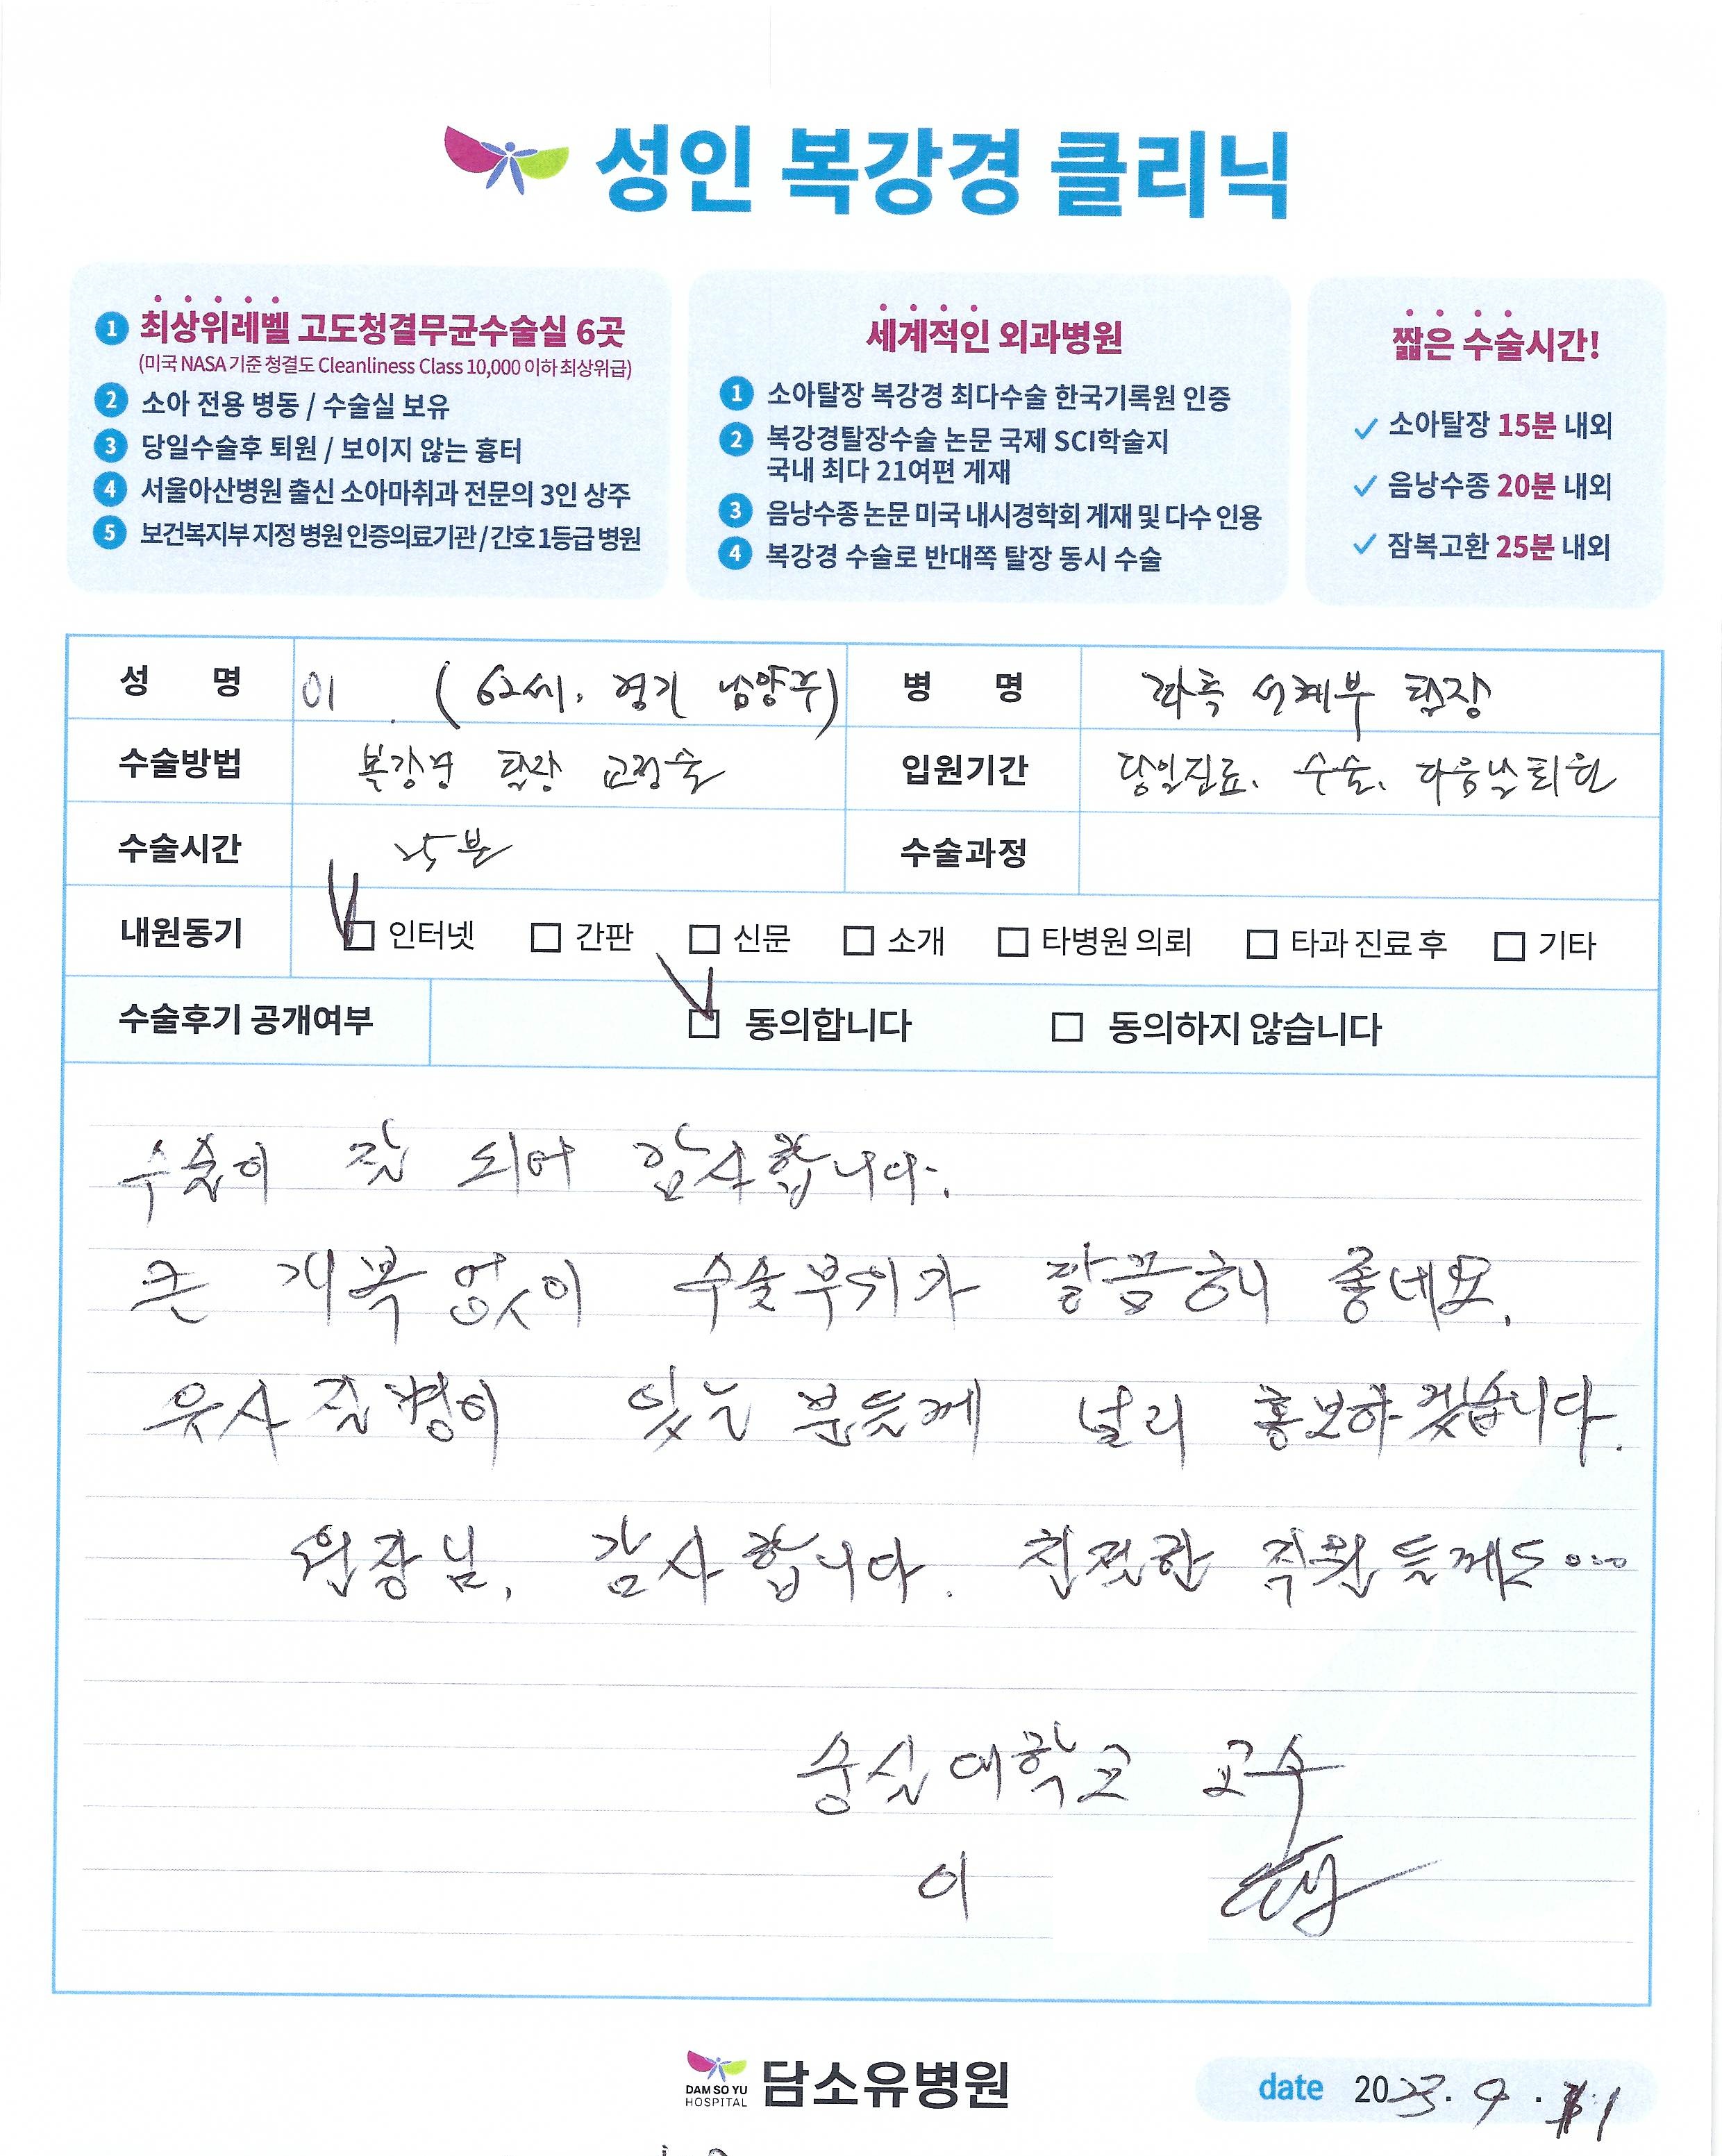 성인 복강경 클리닉
1 최상위레벨 고도청결무균수술실 6곳
(미국 NASA 기준 청결도 Cleanliness Class 10,000 이하 최상위급)
2 소아 전용 병동 / 수술실 보유
3 당일수술후 퇴원 / 보이지 않는 흉터
4 서울아산병원 출신 소아마취과 전문의 3인 상주
5 보건복지부 지정 병원 인증의료기관 / 간호 1등급 병원
세계적인 외과병원
1 소아탈장 복강경 최다수술 한국기록원 인증
2 복강경탈장수술 논문 국제 SCI학술지
국내 최다 21여편 게재
3 음낭수종 논문 미국 내시경학회 게재 및 다수 인용
4 복강경 수술로 반대쪽 탈장 동시 수술
짧은 수술시간!
소아탈장 15분 내외
음낭수종 20분 내외
잠복고환 25분 내외
성 명 이 (62세, 경기 남양주) 병 명 좌측 서혜부 탈장
수술방법 복강경 탈장 교정술 입원기간 당일진료, 수술, 다음날 퇴원
수술시간 25분 수술과정
내원동기 인터넷 간판 신문 소개 타병원 의뢰 타과 진료 후 기타
수술후기 공개여부 동의합니다 동의하지 않습니다
수술이 잘 되어 감사합니다.
큰 개복 없이 수술부위가 깔끔해 좋네요.
유사 질병이 있는 분들께 널리 홍보하겠습니다.
원장님, 감사합니다. 친절한 직원들께도...
숭실대학교 교수
이
DAM SO YU
HOSPITAL
담소유병원
date 2023. 9.